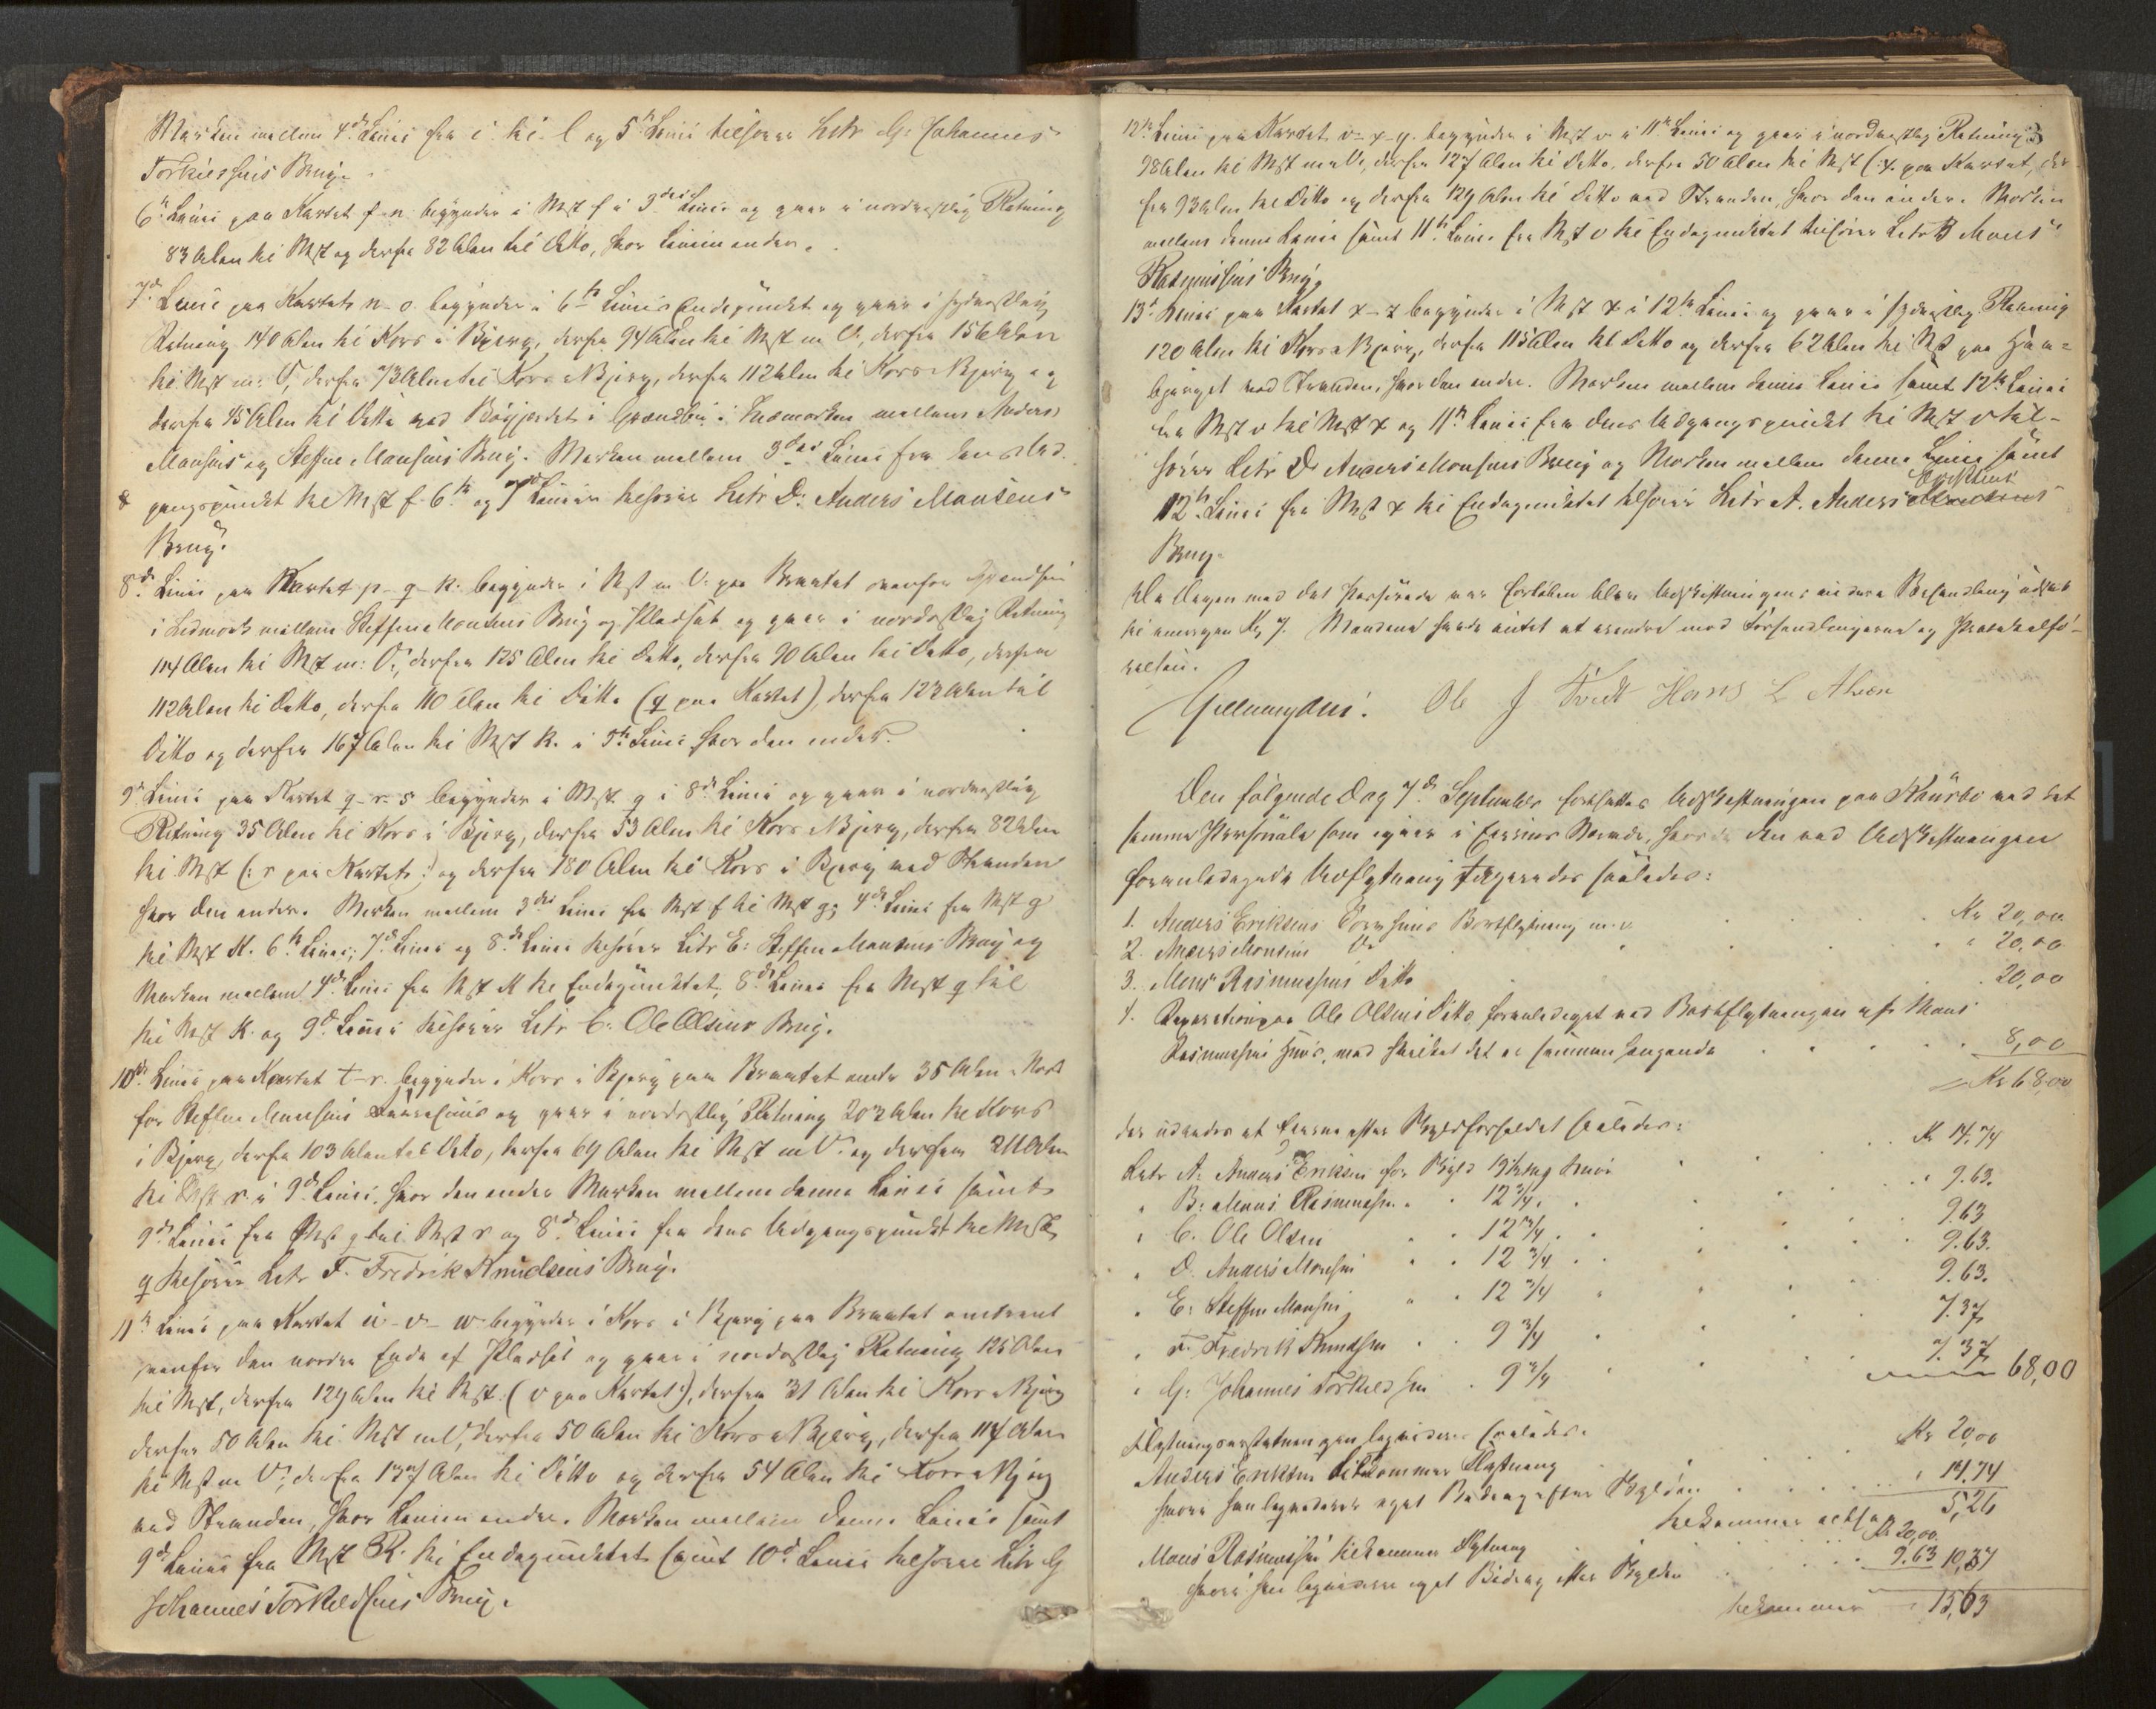 Marken mellem 4de Linie fra i til l og 5te Linie tilhører Litr G. Johannes
Torkildsens Brug.
6te Linie paa Kartet f-n begynder i Mst f i 3die Linie og gaar i nordvestlig Retning
83 Alen til Mst og derfra 82 Alen til Ditto, hvor Linien ender.
7de Linie paa Kartet n-o begynder i 6te Linies Endepunkt og gaar i sydvestlig
Retning 140 Alen til Kors i Bjerg, derfra 94 Alen til Mst m. V., derfra 156 Alen
til Mst m. V, derfra 73 Alen til Kors i Bjerg, derfra 112 Alen til Kors i Bjerg og
derfra 45 Alen til Ditto ved Bøgjerdet i Indmarken mellem Anders
Monsens og Steffen Monsens Brug. Marken mellem 3die Linie fra dens Ud-
gangspunkt til Mst f 6te og 7de Linier tilhører Litr D. Anders Monsens
Brug.
8de Linie paa Kartet p-q-k begynder i Mst m. V. paa Brautet ovenfor
i Udmark mellem Steffen Monsens Brug og Pladset og gaar i nordostlig Retning
114 Alen til Mst m: V., derfra 125 Alen til Ditto, derfra 90 Alen til Ditto, derfra
112 Alen til Ditto, derfra 110 Alen til Ditto (q paa Kartet), derfra 123 Alen til
Ditto og derfra 167 Alen til Mst k i 5te Linie hvor den ender.
9de Linie paa Kartet q-r-s begynder i Mst q i 8de Linie og gaar i nordvestlig
Retning 35 Alen til Kors i Bjerg, derfra 53 Alen til Kors i Bjerg, derfra 82 Alen
til Mst (: r paa Kartet :) og derfra 180 Alen til Kors i Bjerg ved Stranden
hvor den ender. Marken mellem 3die Linie fra Mst f til Mst g, 4de Linie fra Mst g
til Mst K. 6te Linie, 7de Linie og 8de Linie tilhører Litr E: Steffen Monsens Brug og
Marken mellem 4de Linie fra Mst K til Endepunktet, 8de Linie fra Mst q til
til Mst K. og 9de Linie tilhører Litr C. Ole Olsens Brug.
10de Linie paa Kartet t-r begynder i Kors i Bjerg paa Brautet omtr 35 Alen Nord
for Steffen Monsens og gaar i nordostlig Retning 203 Alen til Kors
i Bjerg, derfra 103 Alen til Ditto, derfra 69 Alen til Mst m V. og derfra 211 Alen
til Mst r i 9de Linie, hvor den ender Marken mellem denne Linie samt
9de Linie fra Mst q til Mst r og 8de Linie fra dens Udgangspunkt til Mst
q tilhører Litr F. Fredrik Knudsens Brug.
11te Linie paa Kartet u-v-w begynder i Kors i Bjerg paa Brautet omtrent
ovenfor den nordre Ende af Pladset og gaar i nordostlig Retning 125 Alen
til Mst, derfra 129 Alen til Mst (v paa Kartet), derfra 31 Alen til Kors i Bjerg
derfra 50 Alen til Mst m V, derfra 50 Alen til Kors i Bjerg, derfra 114 Alen
til Mst m V, derfra 137 Alen til Ditto og derfra 54 Alen til Kors i Bjerg
ved Stranden, hvor Linien ender. Marken mellem denne Linie samt
9de Linie fra Mst R. til Endepunktet samt 10de Linie tilhører Litr G
Johannes Torkildsens Brug.
3
12te Linie paa Kartet v-x-y begynder i Mst v i 11te Linie og gaar i nordvestlig Retning
98 Alen til Mst m V., derfra 127 Alen til Ditto, derfra 50 Alen til Mst (: x paa Kartet, der-
fra 93 Alen til Ditto og derfra 129 Alen til Ditto ved Stranden, hvor den ender. Marken
mellem denne Linie samt 11te Linie fra Mst v til Endepunktet tilhører Litr B Mons
Rasmussens Brug.
13de Linie paa Kartet x-z begynder i Mst x i 12te Linie og gaar i sydvestlig Retning
120 Alen til Kors i Bjerg, derfra 115 Alen til Ditto og derfra 62 Alen til Mst paa
bjerget ved Stranden, hvor den ender. Marken mellem denne Linie samt 12te Linie
fra Mst v til Mst x og 11te Linie fra dens Udgangspunkt til Mst v til-
hører Litr D Anders Monsens Brug og Marken mellem denne Linie samt
Eriksens
12te Linie fra Mst x til Endepunktet tilhører Litr A. Anders
Brug.
Da Dagen med det Passerede var forløben blev Udskiftningens videre Behandling udsat
til imorgen Kl 7. Mændene havde intet at erindre mod Forhandlingerne og
Gullaugsen. Ole J Tvedt Hans L Alvær
Den følgende Dag 7de September fortsattes Udskiftningen paa Kaurbø med det
samme Personale som igaar i Eiernes Nærvær, hvorda den ved Udskiftningen
foranledigede Udflytning saaledes:
1. Anders Eriksens Bortflytning m. v. Kr 20,00
2. Anders Monsens Do " 20,00
3. Mons Rasmussens Ditto 20,00
4. Reparation paa Ole Olsens Ditto foranlediget ved Bortflytningen af Mons
Rasmussens Huus, med hvilket det er sammenhængende 8,00
Kr 68,00
der udredes af Eierne efter Skyldforholdet saaledes:
Litr A. Anders Eriksen for Skyld 19½ Kr 14.74
" B: Mons Rasmussen " 12¾ " 9.63.
" C. Ole Olsen " 12¾ 9.63
" D. Anders Monsen " 12¾ 9.63.
" E: Steffen Monsen " 12¾ 9.63.
" F. Fredrik Knudsen " 9¾ 7.37
" G: Johannes Torkildsen " 9¾ 7.37 68,00
Flytningserstatningen saaledes.
Anders Eriksen tilkommer Flytning Kr 20,00
hvori han eget Bidrag efter Skylden " 14.74
tilkommer altsaa 5,26
Mons Rasmussen tilkommer Flytning Kr 20,00
hvori han eget Bidrag efter Skylden 9.63 10,37
tilkommer 15,63